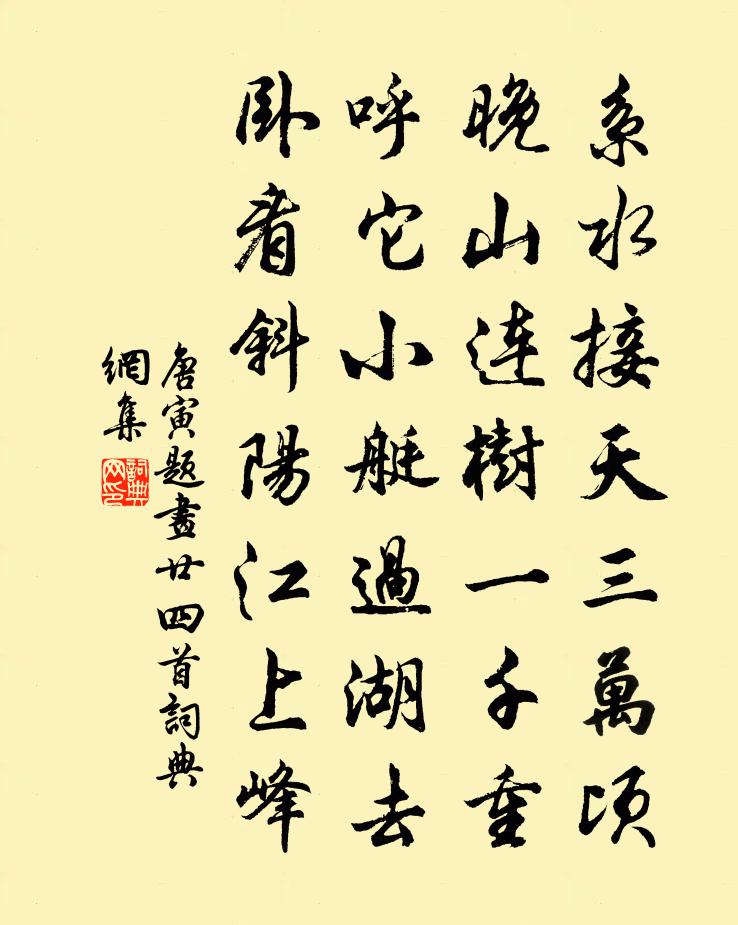 系水接天三萬頃
晚山連樹一千重
呼它小艇過湖去
卧看斜陽江上峰
唐寅題畫廿四首詞典
網集
詞典
网印